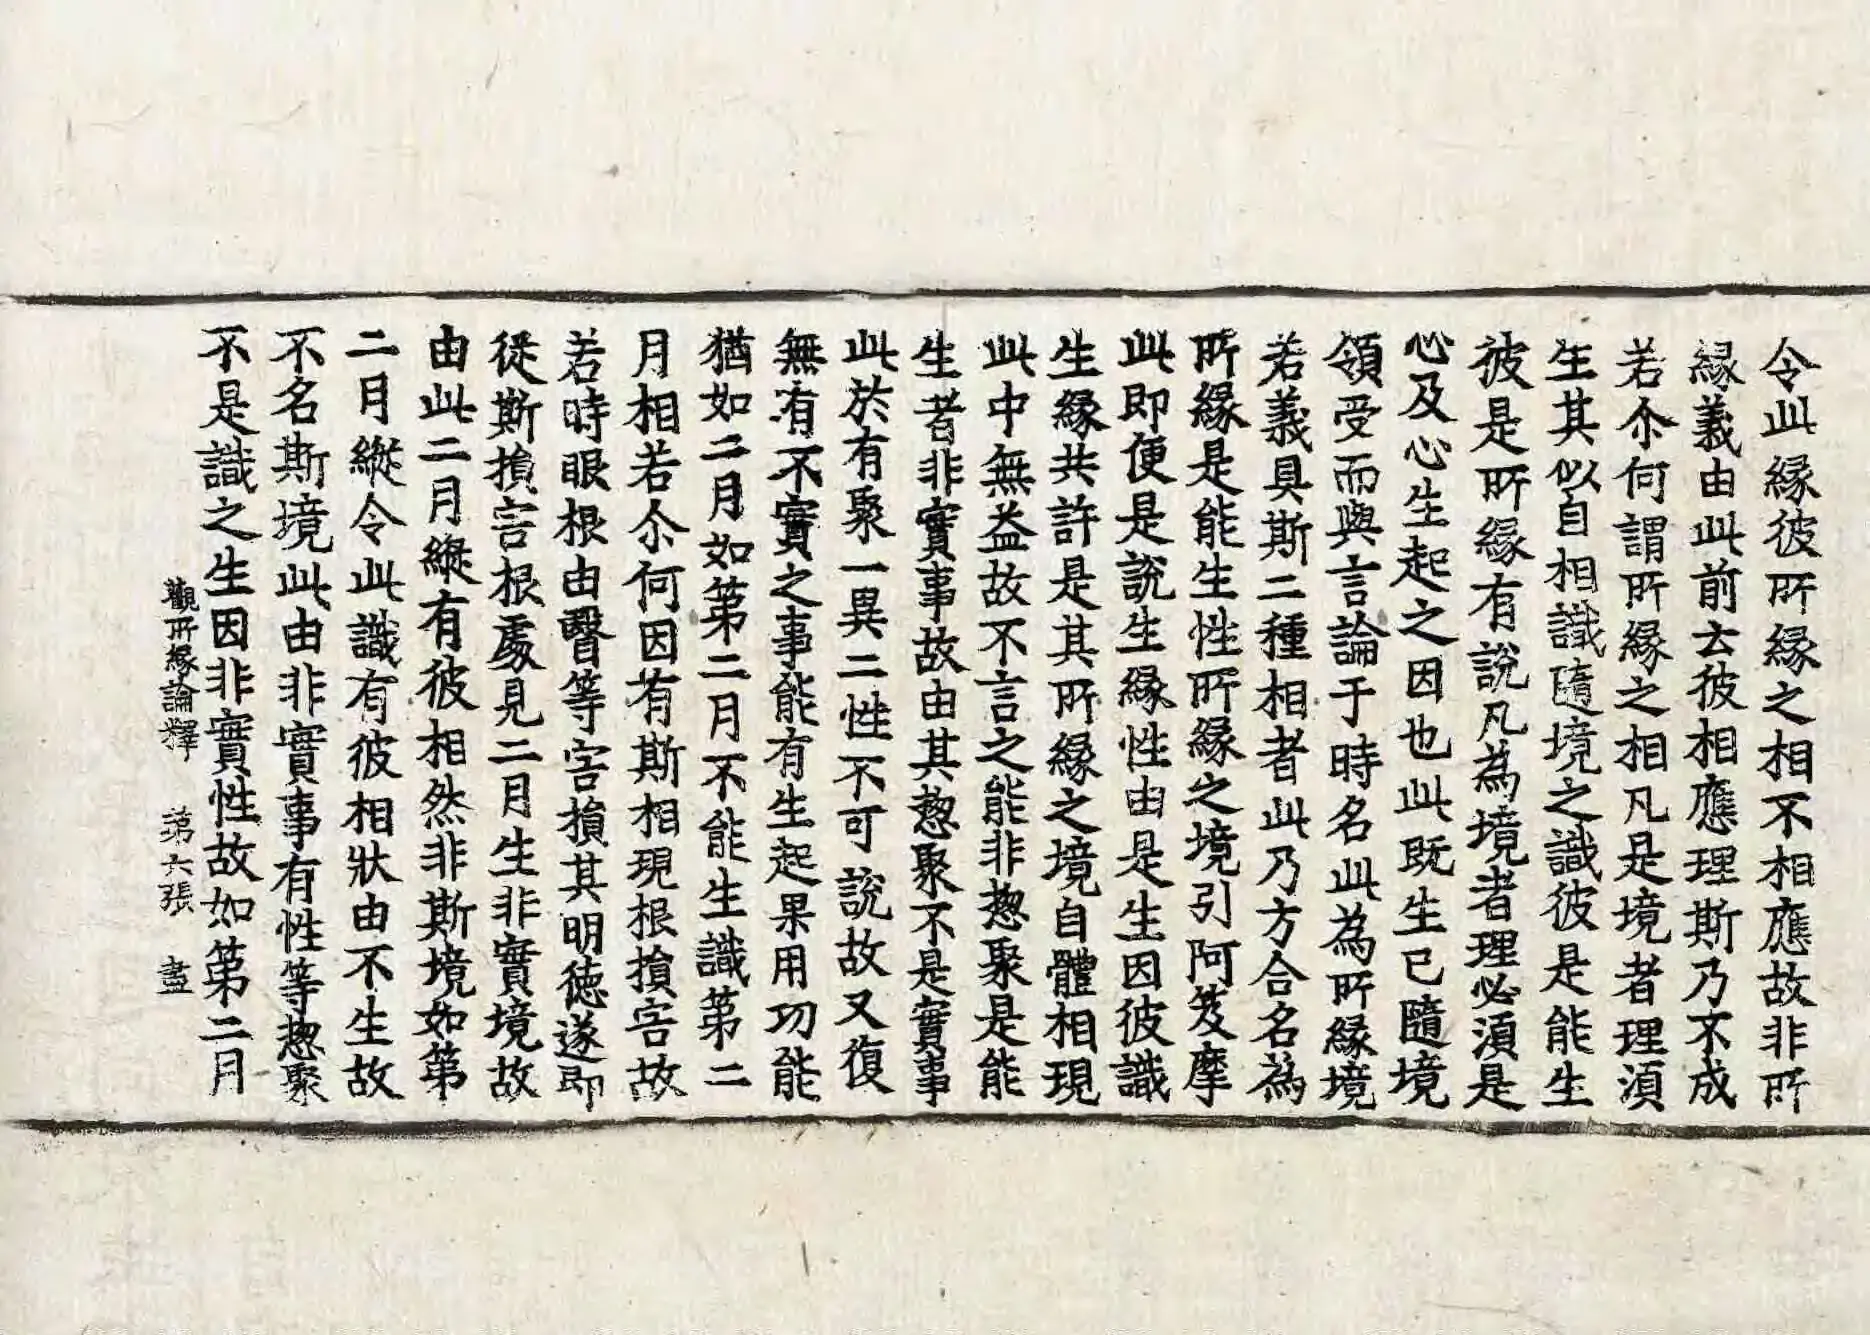 令此縁彼所縁之相不相應故非所
縁義由此前去彼相應理斯乃不成
若尒何謂所縁之相凡是境者理湏
生其似自相識隨境之識彼是能生
彼是所縁有說凡為境者理必湏是
心及心生起之因也此既生已隨境
領受而與言論于時名此為所縁境
若義具斯二種相者此乃方合名為
所縁是能生性所縁之境引阿笈摩
此即便是說生縁性由是生因彼識
生縁共許是其所縁之境自體相現
此中無益故不言之能非惣聚是能
生者非實事故由其惣聚不是實事
此於有聚一異二性不可說故又復
無有不實之事能有生起果用功能
猶如二月如第二月不能生識第二
月相若尒何因有斯相現根損害故
若時眼根由瞖等害損其明徳遂即
從斯損害根處見二月生非實境故
由此二月縱有彼相然非斯境如第
二月縱令此識有彼相狀由不生故
不名斯境此由非實事有性等惣聚
不是識之生因非實性故如第二月
觀所縁論釋 第六張 盖